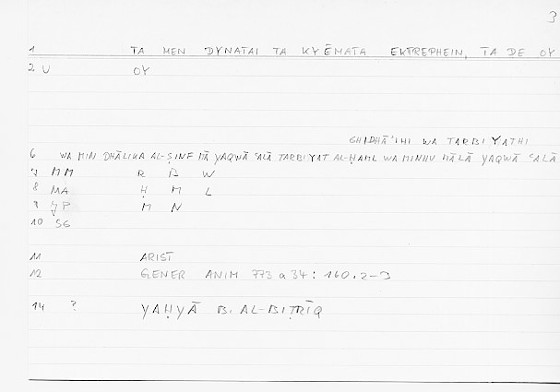 3
1 TA MEN DYNATAI TA KYĒMATA EKTREPHEIN, TA DE OY
2 U OY
GHIDHĀ'IHI WA TARBIYATHI
6 WA MIN DHĀLIKA AL-ṢINF MĀ YAQWĀ ʿALĀ TARBIYAT AL-ḤAML WA MINHU MĀ LĀ YAQWĀ ʿALĀ
7 MM R B W
8 MA Ḥ M L
9 M N
10 SG
11 ARIST
12 GENER ANIM 773 a 34 : 160.2-3
14 ? YAḤYĀ B. AL-BIṬRĪQ